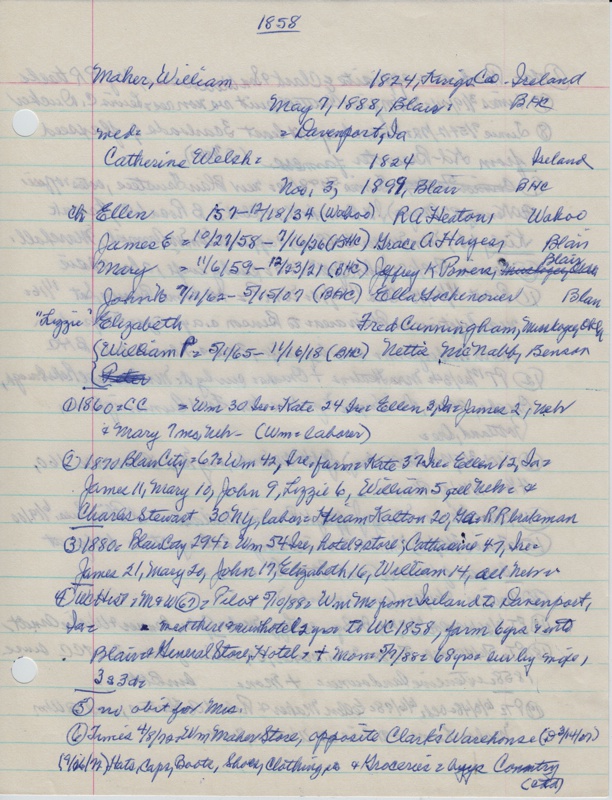 1858
Maher, William 1824, Kings Co. - Ireland
May 7, 1888, Blair: BHC
med= = Davenport, Ia
Catherine Welsh= 1824 Ireland
Nov, 3, 1899, Blair BHC
ch Ellen 57-12/18/34 (Wahoo) R A Heaton, Wahoo
James E = 10/27/58 - 7/16/26 (BHC) Grace A Hayes, Blair
Mary = 11/6/59 - 12/23/21 (BHC) Jeffrey K Powers, Blair
John 7/11/62 - 5/15/07 (BHC) Ella Blair
"Lizzie" Elizabeth Fred Cunningham, Muskogee, Okla
William P = 5/1/65 - 11/16/18 (BHC) Nettie McNabb, Benson
Peter
① 1860=CC = Wm 30 Ire= Kate 24 Ire= Ellen 3, Ia= James 2, Nebr
& Mary 7 mo, Neb- (Wm=laborer)
② 1870 Blair City=67= Wm 42, Ire, farm= Kate 37 Ire= Ellen 12, Ia=
James 11, Mary 10, John 9, Lizzie 6, William 5 all Neb= &
Charles Stewart 30 NY, labor= Hiram Kalton 20, R R brakeman
③ 1880= Blair City 294= Wm 54 Ire, hotel & store; Catharine 47, Ire=
James 21, Mary 20, John 17, Elizabeth 16, William 14, all Neb=
④ W Hist = M & W 67= Pilot 5/10/88= Wm Ma from Ireland to Davenport,
Ia= med there & hotel 2 yrs to WC 1858, farm 6 yrs & into
Blair & General Store, Hotel= + mon= 5/7/88= 68 yrs sur by wife,
3s 3d=
⑤ no obit for Mrs.
⑥ Times 4/8/70= Wm Maher Store, opposite Clark's Warehouse
Hats, Caps, Boots, Shoes, Clothing, & Groceries= Country